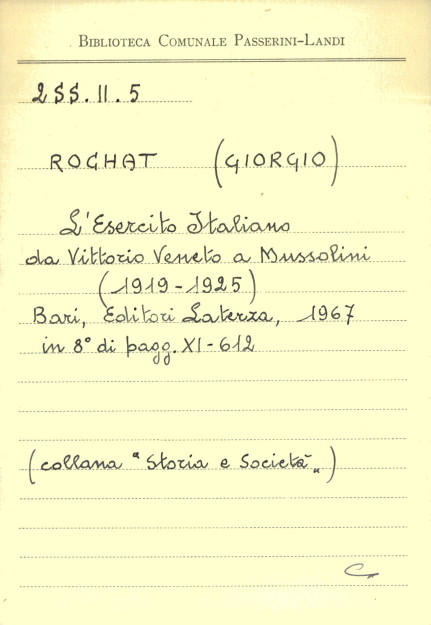 BIBLIOTECA COMUNALE PASSERINI-LANDI
2SS.II.5
ROCHAT (GIORGIO)
L'Esercito Italiano
da Vittorio Veneto a Mussolini
(1919-1925)
Bari, Editori Laterza, 1967
in 8° di pagg. XI-612
(collana "Storia e Società")